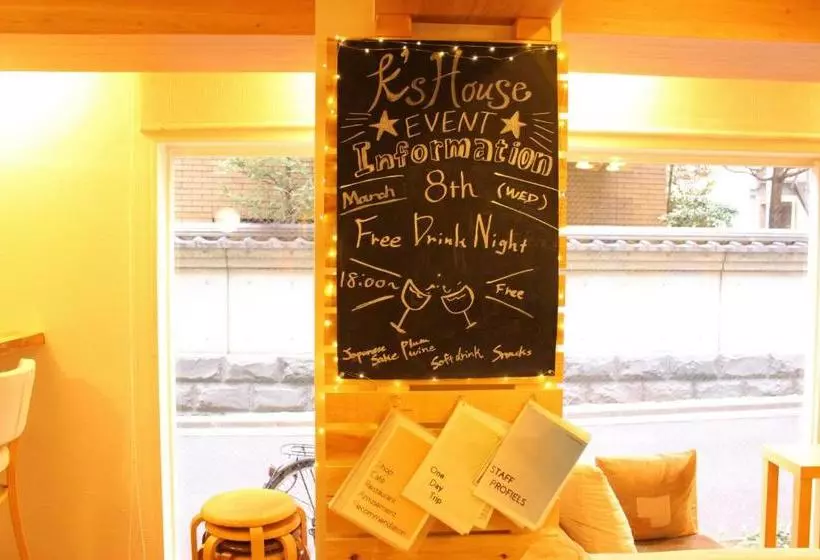 K's House
EVENT
Information
March 8th (WED)
Free Drink Night
18:00~
Free
Japanese Sake
Plum wine
Soft drink
Snacks
Shop
Café
Restaurant
Amusement
recommendation
One
Day
Trip
STAFF
PROFIELS